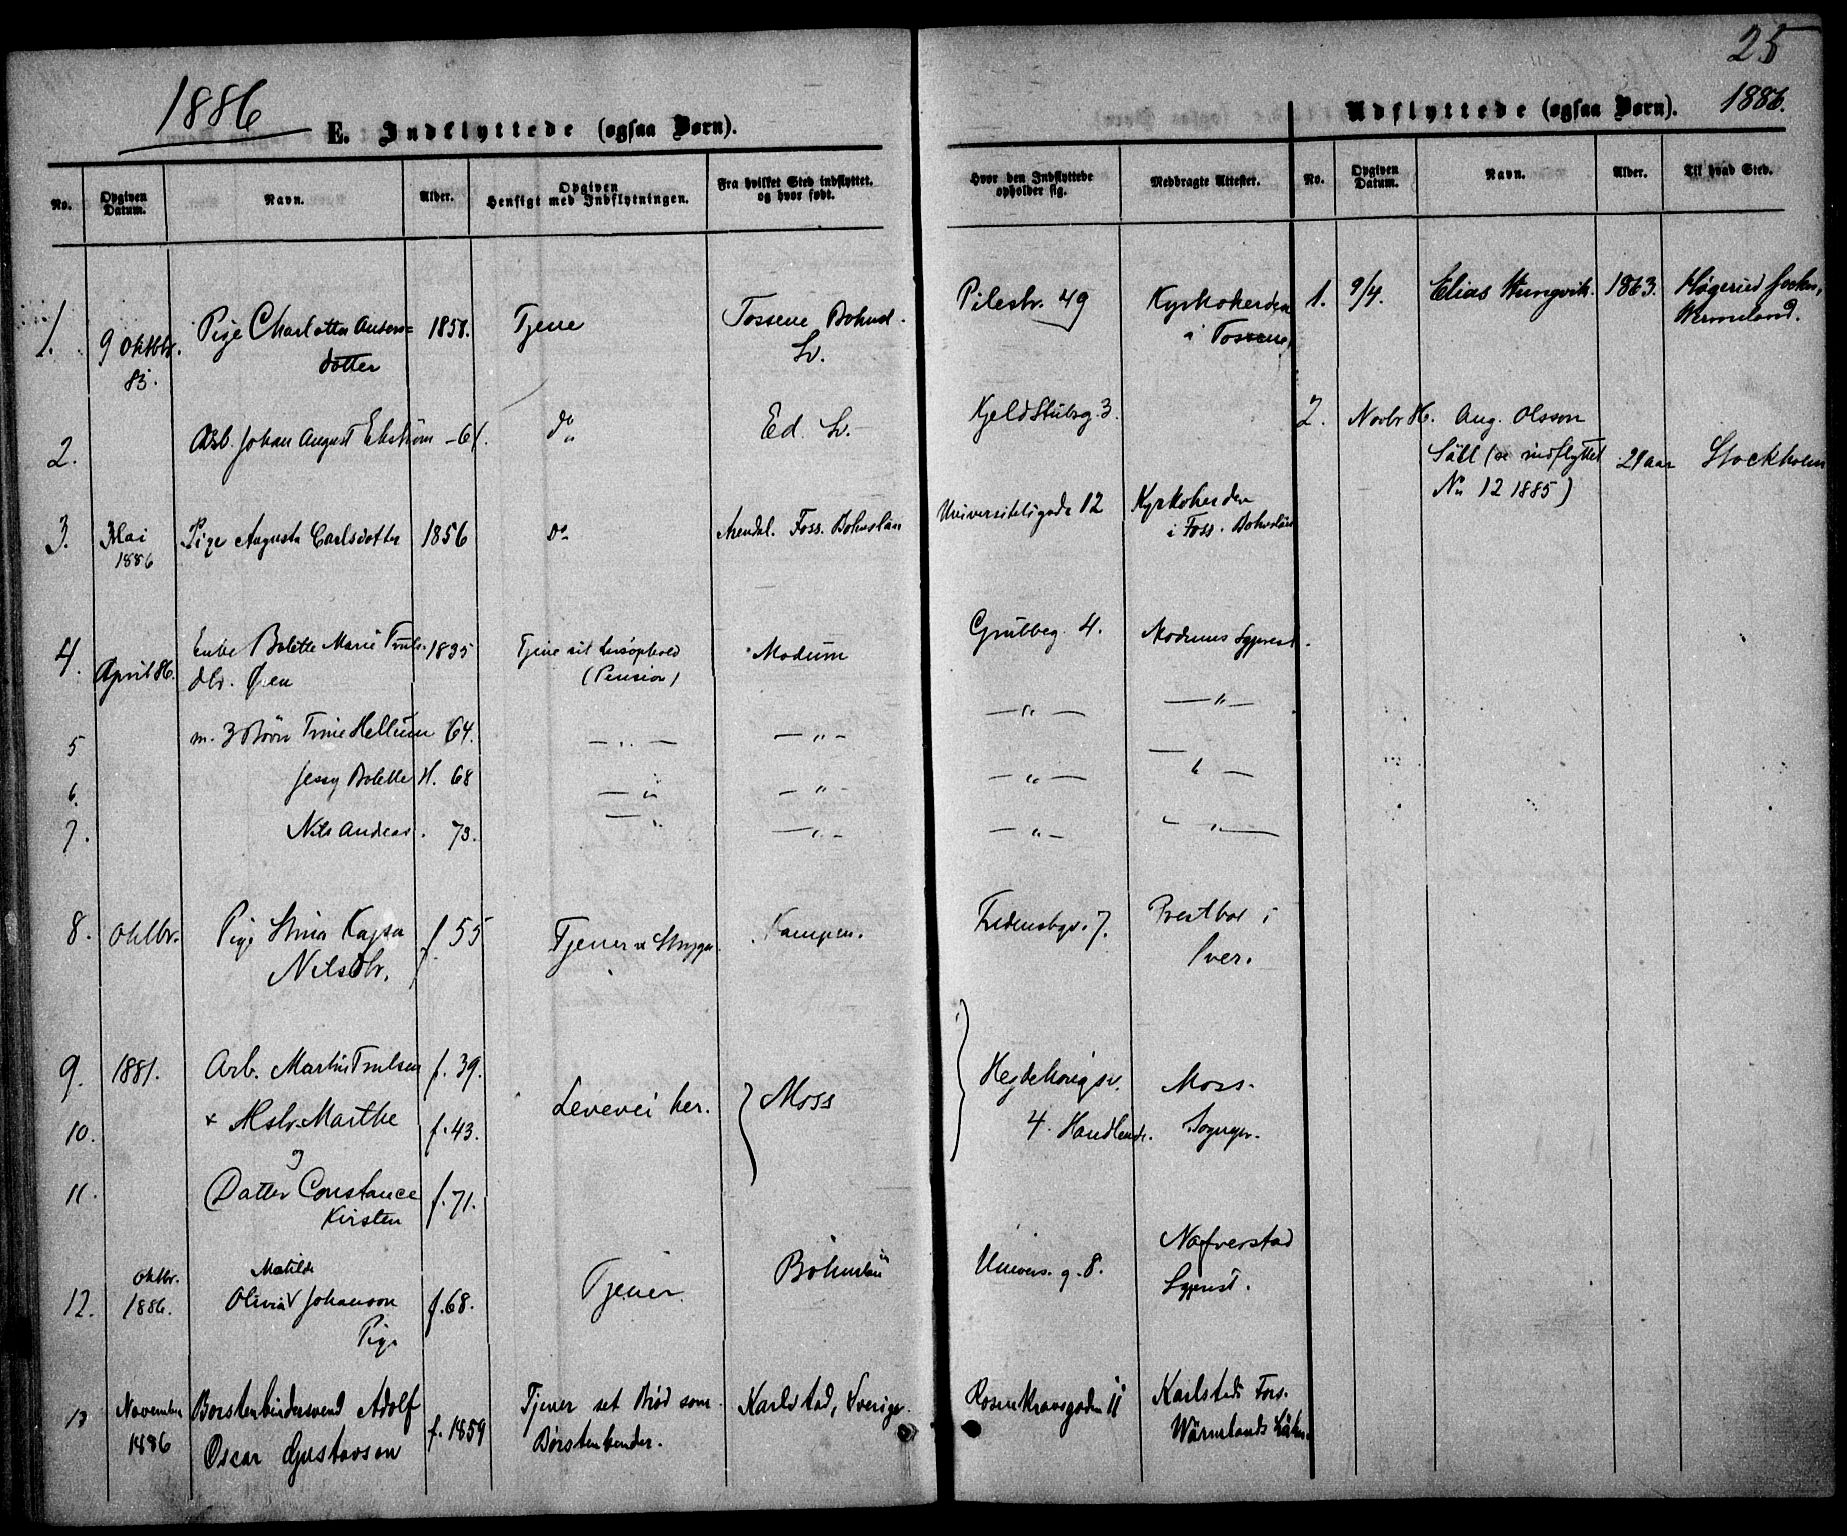 25
1886
E. Indflyttede (ogsaa Børn).
Udflyttede (ogsaa Børn). 1886.
No. Opgiven Datum. Navn. Alder. Opgiven Hensigt med Indflytningen. Fra hvilket Sted indflyttet. og hvor født. Hvor den Indflyttede opholder sig. Medbragte Attester. No. Opgiven Datum. Navn. Alder. Til hvad Sted.
1. 9 Oktbr. 85. Pige Charlotta Anders=dotter 1858. Tjene Tossene Bohusl. Sv. Pilestr. 49 Kyrkoherden i Tossene
2. Arb. Johan August Ekström -61. do Ed. Sv. Kjeld Stubsg. 3.
3. Mai 1886 Pige Augusta Carlsdotter 1856 Do Arendal. Foss. Bohuslän Universitetsgade 12 Kyrkoherden i Foss. Bohuslän
4. April 86. Enke Bolette Marie Truls. dtr. Øen 1835 Tjene sit Livsophold (Pension) Modum Grubbeg. 4. Modums Sgprest.
5 m. 3 Børn Trine Hellum 64. — „ — — „ — — „ — — „ —
6. Jessy Bolette H. 68 — „ — „ — — „ — — „ —
7. Nils Andreas. 73. — „ — „ — — „ — — „ —
8. Oktbr. Pige Stina Kajsa Nilsdtr. f. 55 Tjener Kampen. Fredensbgv. 7. Prestbol i
9. 1881. Arb. Martin Trulsen f. 39. Levevei her. Moss Hegdehougsv. 4. Handlende. Moss Sognepr.
10. + Hstr. Marthe f. 43.
og
11. Datter Constance Kirsten f. 71.
12. Oktbr. 1886. Olivia Matilde Johanson Pige f. 68. Tjener. Bohuslän Univers. g. 8. Nafverstad Sgprest.
13 November 1886 Børstenbindersvend Adolf Oscar Gustavson f. 1859 Tjener set Brød som Børstenbinder. Karlstad, Sverige. Rosenkransgaden 11 Karlstads Fors. Wärmlands Län.
1. 9/4. Elias 1863. Wermeland.
2. Novbr 86. Aug. Olsson Säll (se indflyttet No 12 1885) 21 aar Stockholm